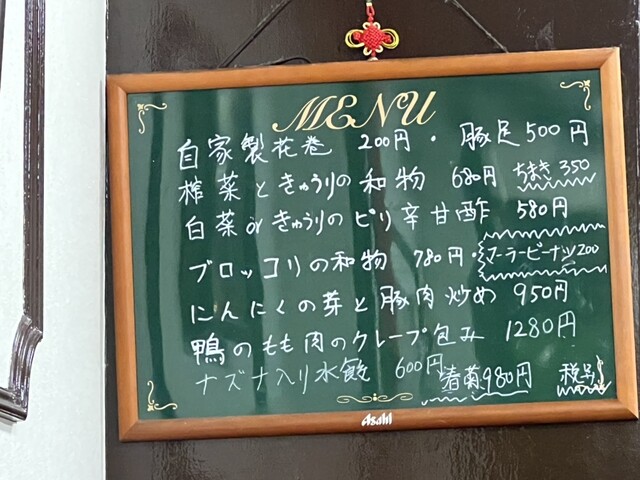 MENU
自家製花巻 200円・豚足500円
榨菜ときゅうりの和物 680円 ちまき350
白菜orきゅうりのピリ辛甘酢 580円
ブロッコリの和物 780円・マーラーピーナッツ200
にんにくの芽と豚肉炒め 950円
鴨のもも肉のクレープ包み 1280円
ナズナ入り水餃 600円 春菊980円
Asahi